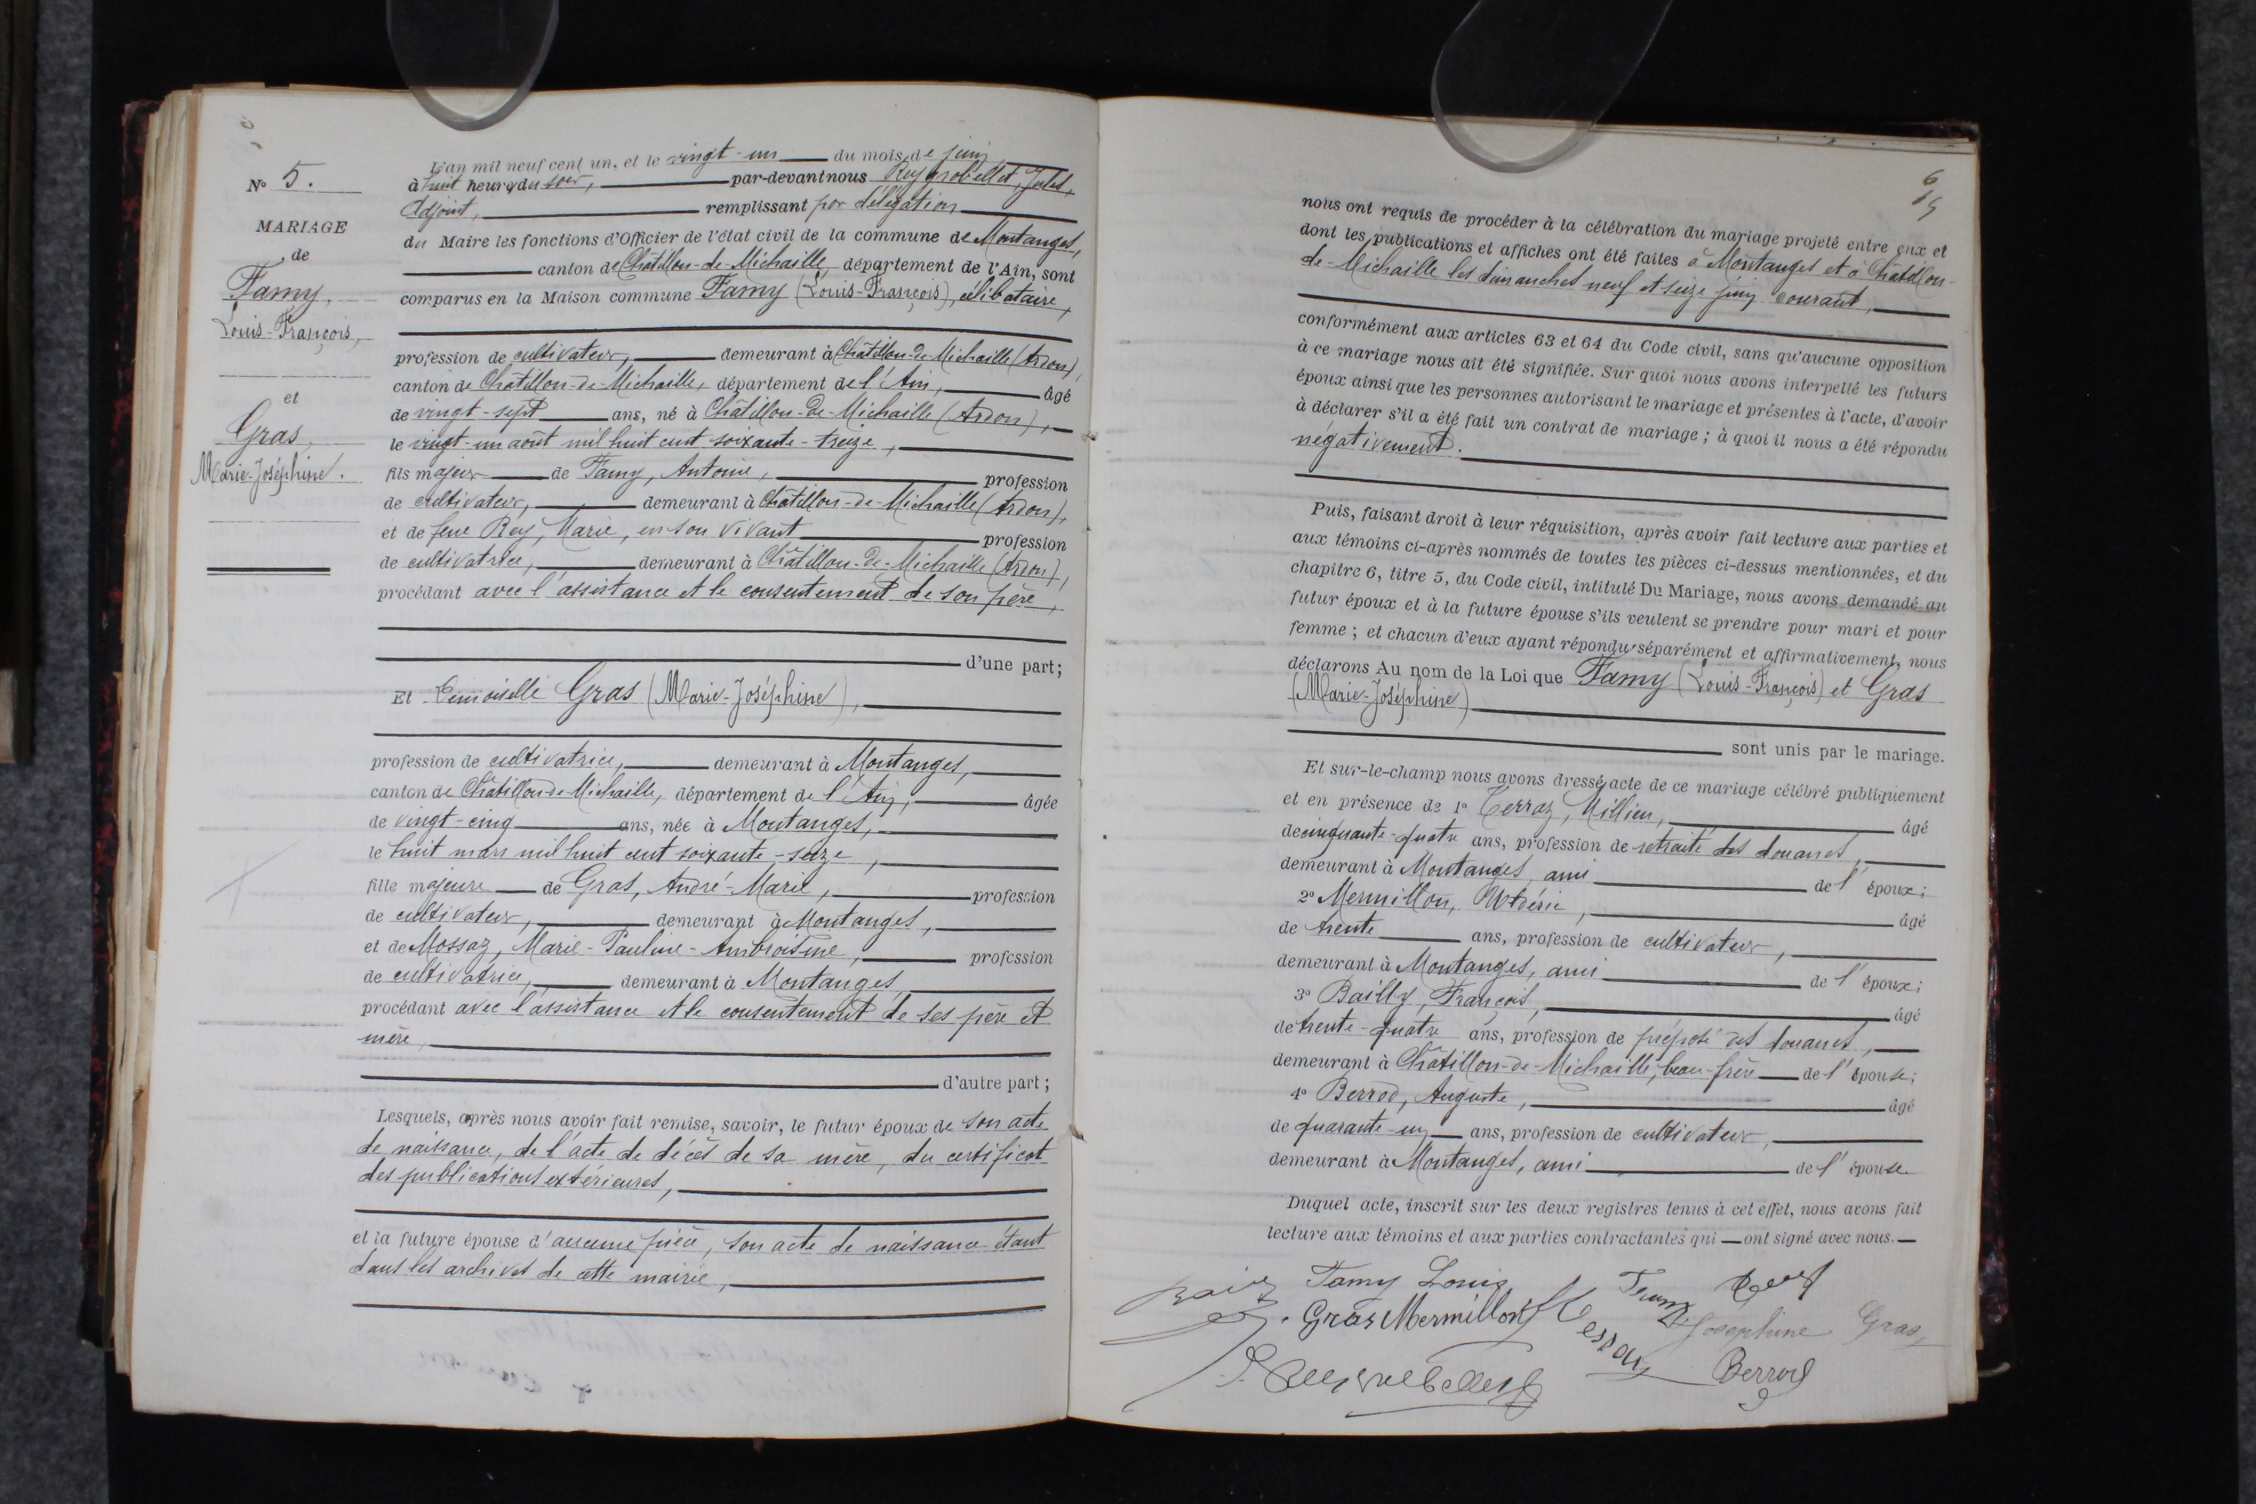 N° 5.
MARIAGE
de
Famy,
Louis-François,
et
Gras,
Marie-Joséphine.
L'an mil neuf cent un, et le vingt-un du mois de juin
à huit heures du soir, par-devant nous Reygrobellet, Jules,
Adjoint, remplissant par délégation
du Maire les fonctions d'Officier de l'état civil de la commune de Montanges,
canton de Châtillon-de-Michaille, département de l'Ain, sont
comparus en la Maison commune Famy (Louis-François), célibataire,
profession de cultivateur, demeurant à Châtillon-de-Michaille (Ardon),
canton de Châtillon-de-Michaille, département de l'Ain, âgé
de vingt-sept ans, né à Châtillon-de-Michaille (Ardon),
le vingt-un août mil huit cent soixante-treize,
fils majeur de Famy, Antoine, profession
de cultivateur, demeurant à Châtillon-de-Michaille (Ardon),
et de feue Rey, Marie, en son vivant profession
de cultivatrice, demeurant à Châtillon-de-Michaille (Ardon),
procédant avec l'assistance et le consentement de son père,
d'une part;
Et Demoiselle Gras (Marie-Joséphine),
profession de cultivatrice, demeurant à Montanges,
canton de Châtillon-de-Michaille, département de l'Ain, âgée
de vingt-cinq ans, née à Montanges,
le huit mars mil huit cent soixante-seize,
fille majeure de Gras, André-Marie, profession
de cultivateur, demeurant à Montanges,
et de Mossaz, Marie-Pauline-Ambroisine, profession
de cultivatrice, demeurant à Montanges,
procédant avec l'assistance et le consentement de ses père et
mère,
d'autre part;
Lesquels, après nous avoir fait remise, savoir, le futur époux de son acte
de naissance, de l'acte de décès de sa mère, du certificat
des publications extérieures,
et la future épouse d'aucune pièce, son acte de naissance étant
dans les archives de cette mairie,
6
nous ont requis de procéder à la célébration du mariage projeté entre eux et
dont les publications et affiches ont été faites à Montanges et à Châtillon-
de-Michaille les dimanches neuf et seize juin courant,
conformément aux articles 63 et 64 du Code civil, sans qu'aucune opposition
à ce mariage nous ait été signifiée. Sur quoi nous avons interpellé les futurs
époux ainsi que les personnes autorisant le mariage et présentes à l'acte, d'avoir
à déclarer s'il a été fait un contrat de mariage; à quoi il nous a été répondu
négativement.
Puis, faisant droit à leur réquisition, après avoir fait lecture aux parties et
aux témoins ci-après nommés de toutes les pièces ci-dessus mentionnées, et du
chapitre 6, titre 5, du Code civil, intitulé Du Mariage, nous avons demandé au
futur époux et à la future épouse s'ils veulent se prendre pour mari et pour
femme; et chacun d'eux ayant répondu séparément et affirmativement, nous
déclarons Au nom de la Loi que Famy (Louis-François) et Gras
(Marie-Joséphine)
sont unis par le mariage.
Et sur-le-champ nous avons dressé acte de ce mariage célébré publiquement
et en présence de 1° Terraz, Millien, âgé
de cinquante-quatre ans, profession de retraité des douanes,
demeurant à Montanges, ami de l'époux;
2° Mermillon, âgé
de trente ans, profession de cultivateur,
demeurant à Montanges, ami de l'époux;
3° Bailly, François, âgé
de trente-quatre ans, profession de préposé des douanes,
demeurant à Châtillon-de-Michaille, beau-frère de l'épouse;
4° Berrod, Auguste, âgé
de quarante-un ans, profession de cultivateur,
demeurant à Montanges, ami de l'épouse
Duquel acte, inscrit sur les deux registres tenus à cet effet, nous avons fait
lecture aux témoins et aux parties contractantes qui ont signé avec nous.
Famy Louis
Gras Mermillon
Joséphine Gras,
Berrod